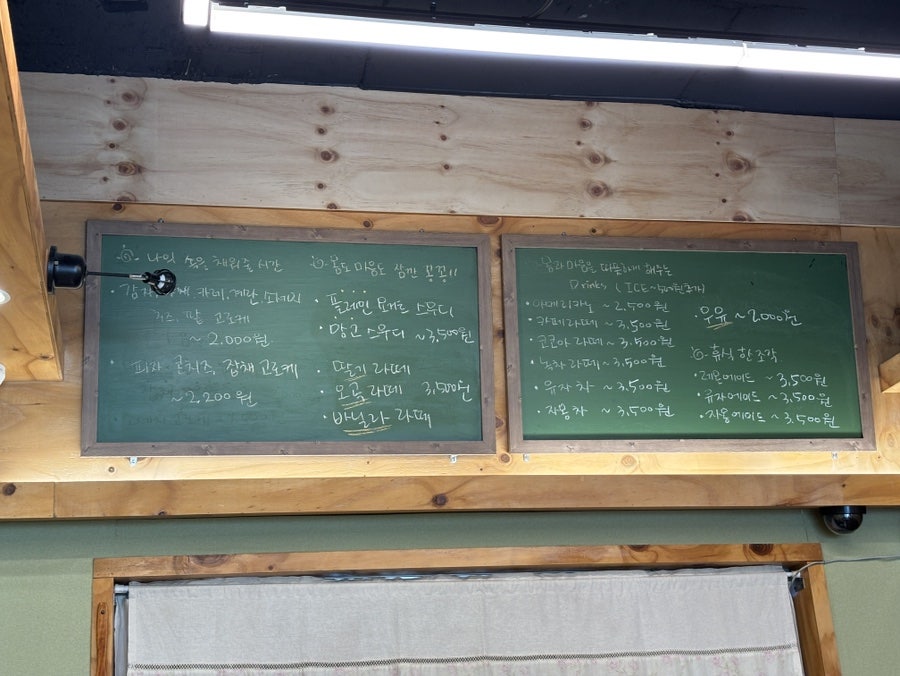 나의 속을 채워줄 시간
카레, 계란, 소세지
치즈, 팥 고로케
~ 2.000원
피자 콘치즈, 잡채 고로케
~ 2.200원
몸도 마음도 잠깐 꽁꽁!!
• 플레인 요거트 스무디
• 망고 스무디 ~ 3,500원
• 딸기 라떼
• 모곰 라떼 3,500원
• 바닐라 라떼
몸과 마음을 따뜻하게 해주는
Drinks (ICE ~ 500원 추가)
• 아메리카노 ~ 2,500원
• 카페라떼 ~ 3,500원
• 코코아 라떼 ~ 3,500원
• 녹차 라떼 ~ 3,500원
• 유자 차 ~ 3,500원
• 자몽 차 ~ 3,500원
• 우유 ~ 2000원
휴식 한 조각
• 레몬에이드 ~ 3,500원
• 유자에이드 ~ 3,500원
• 자몽에이드 ~ 3,500원